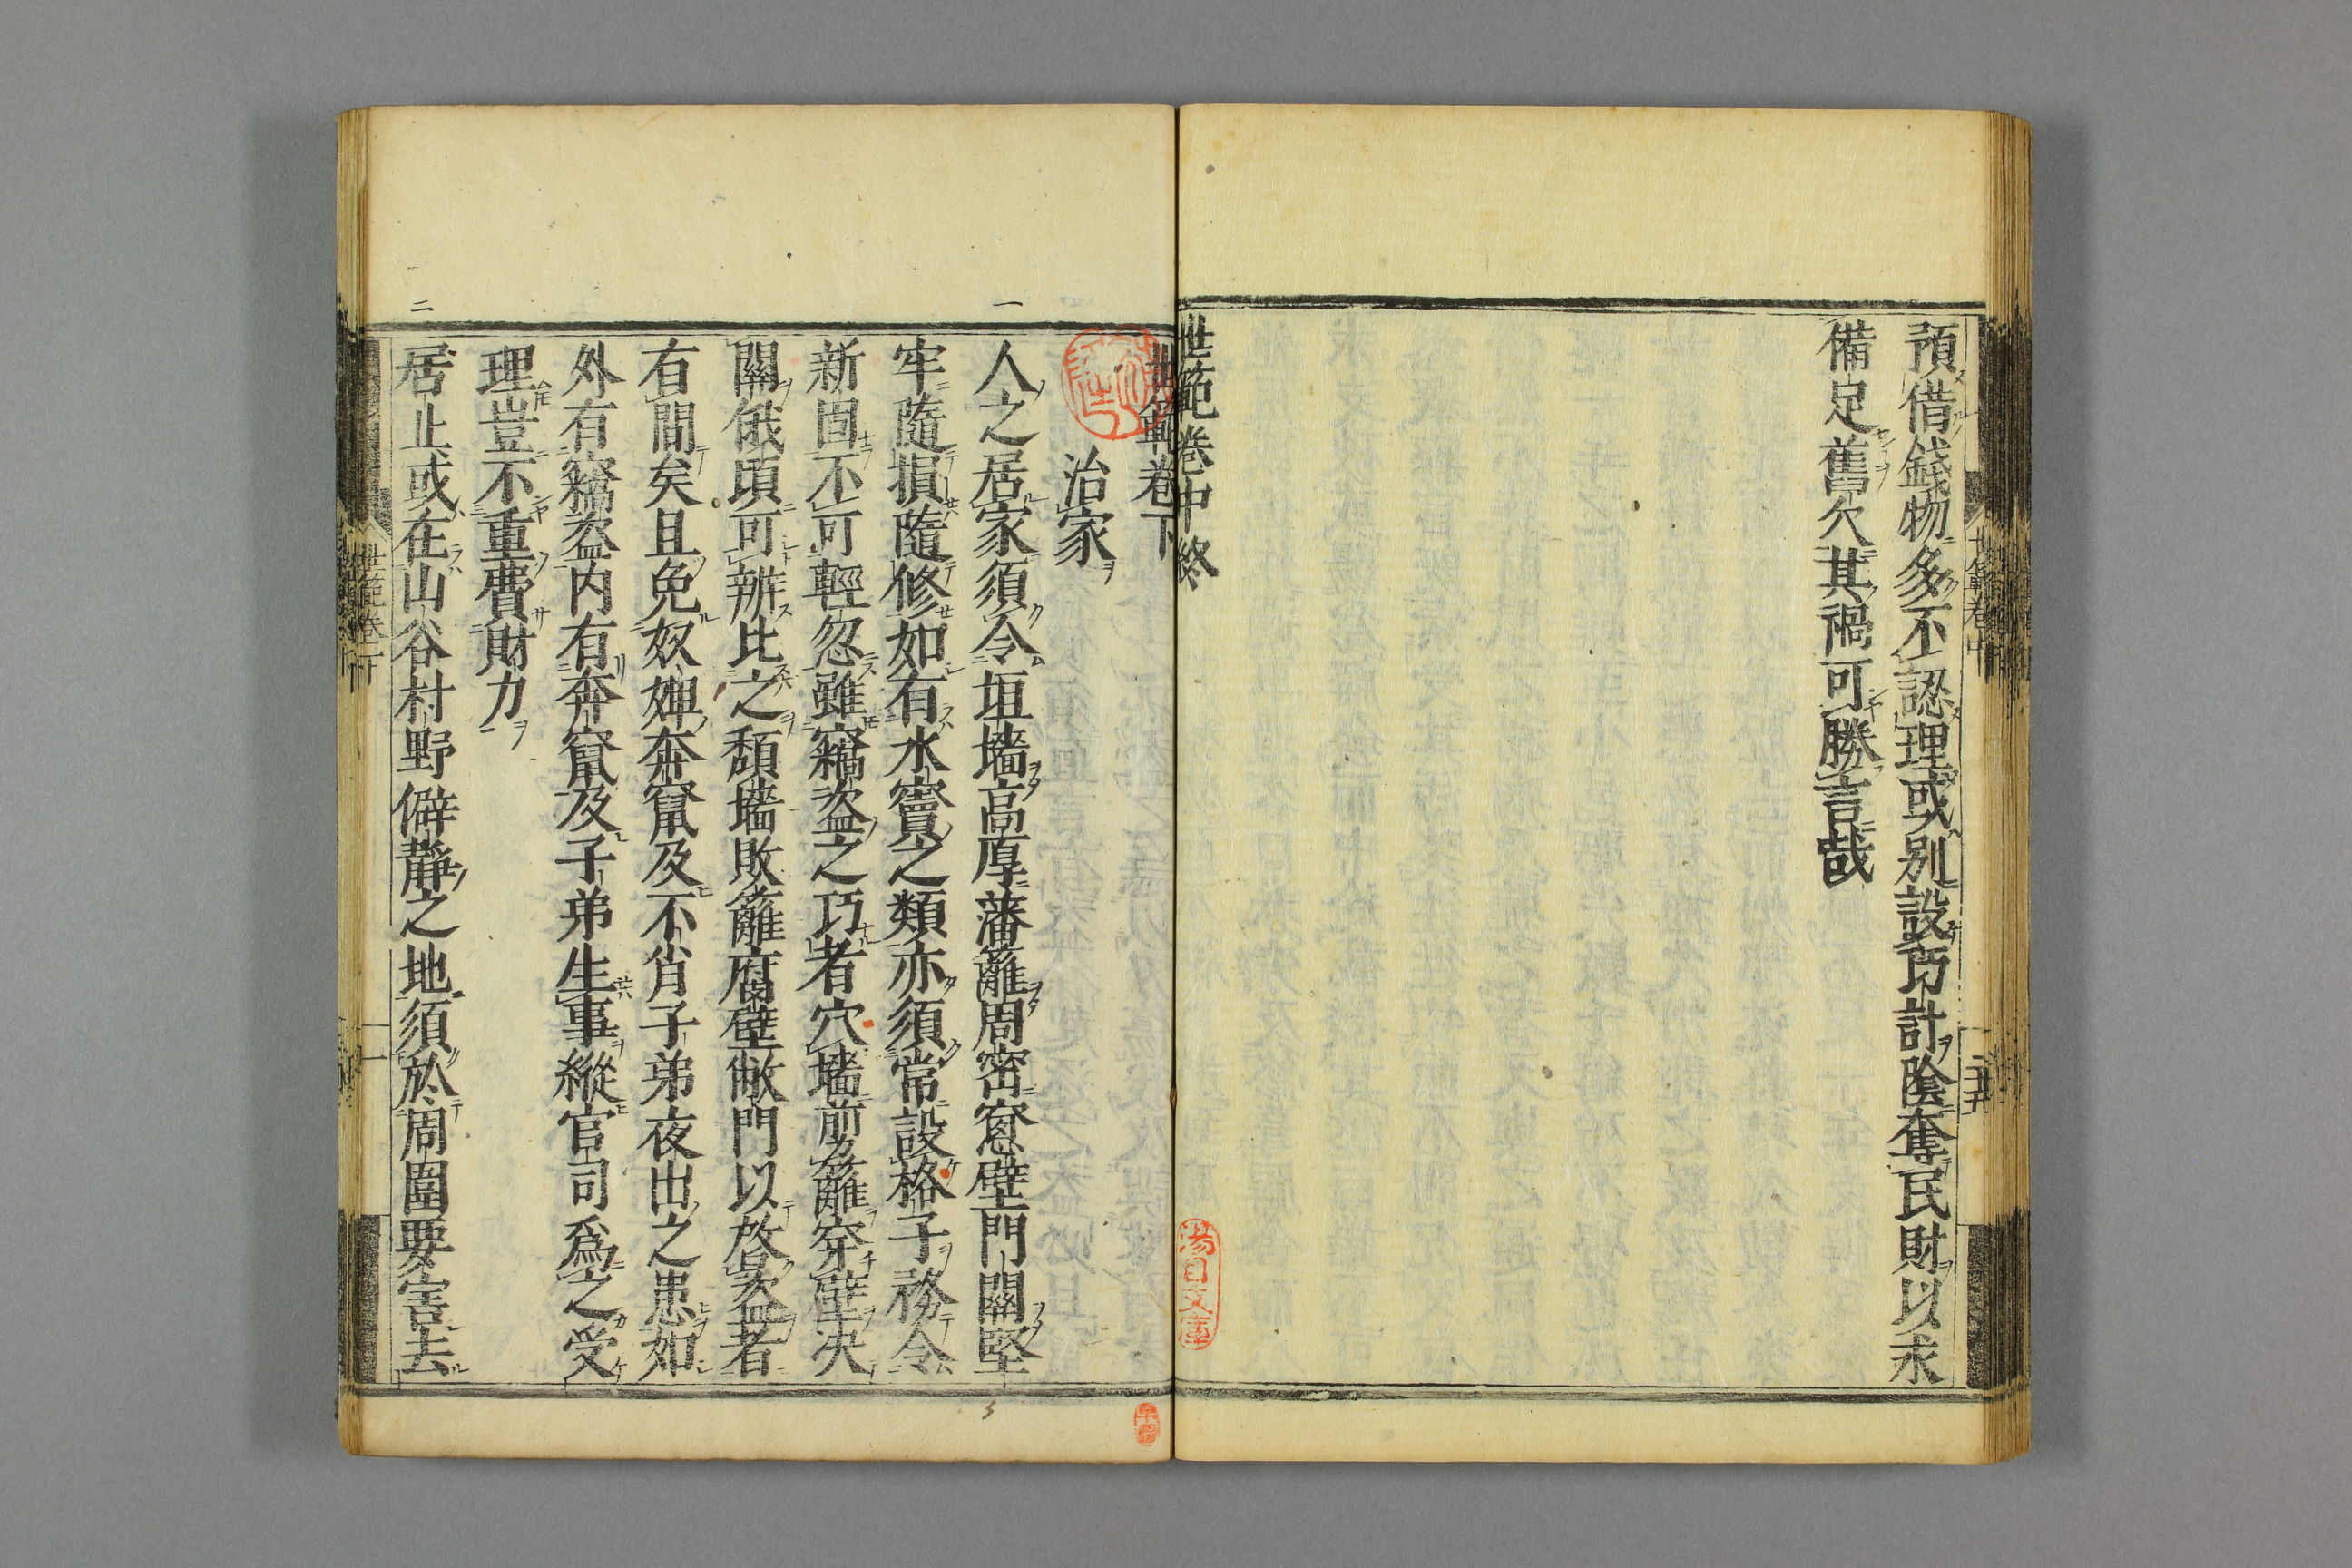 預借錢物多不認理或別設巧計陰奪民財以求
備足舊欠其禍可勝言哉
世範卷中終
世範卷中
二十五
世範卷下
治家
一
人之居家須令垣墻高厚藩籬周密窓壁門關堅
牢隨損隨修如有水竇之類亦須常設格子務令
新固不可輕忽雖竊盗之巧者穴墻剪籬穿壁决
關俄頃可辨比之頹墻敗籬腐壁敝門以啓盗者
有間矣且免奴婢奔竄及不肖子弟夜出之患如
外有竊盗内有奔竄及子弟生事縱官司爲之受
理豈不重費財力
二
居止或在山谷村野僻静之地須於周圍要害去
世範卷下
一
湯目文庫